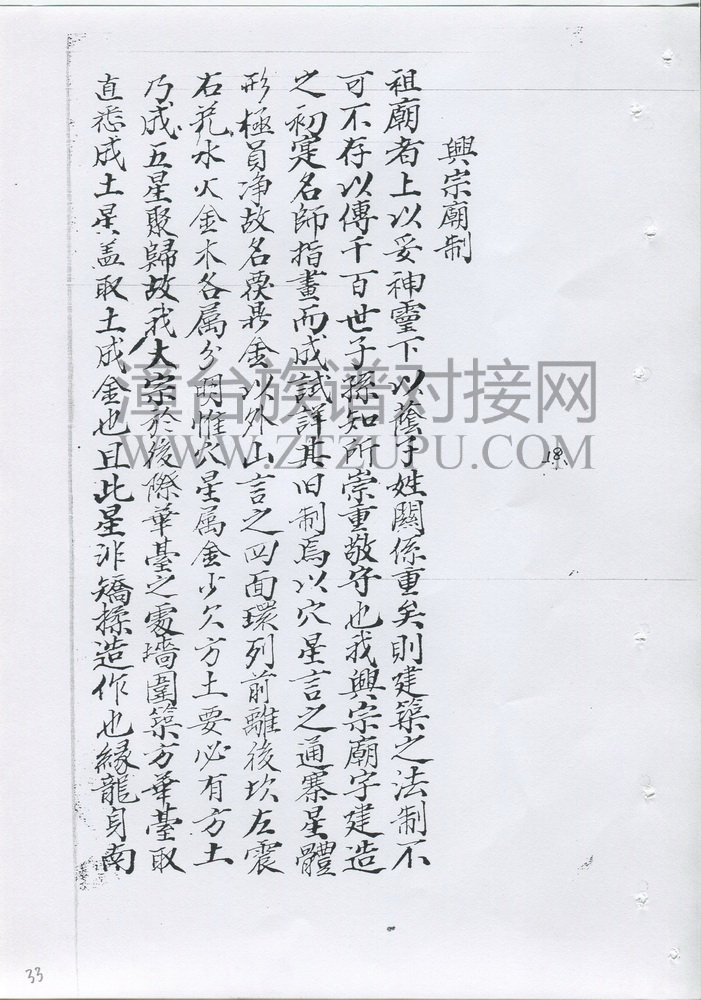 興宗廟制
祖廟者上以妥神靈下以蔭子姓關係重矣則建築之法制不
可不存以傳千百世子孫知所崇重敬守也我興宗廟宇建造
之初寔名師指畫而成試詳其旧制焉以穴星言之通寨星體
形極員净故名覆鼎金以外山言之四面環列前離後坎左震
右兌水火金木各属分明惟穴星属金少欠方土要必有方土
乃成五星聚歸故我大宗於後際華臺之處墻圍築方華臺取
直悉成土星盖取土成金也且此星非矯揉造作也緣龍身南
漳台族谱对接网
WWW.ZTZUPU.COM
19
33